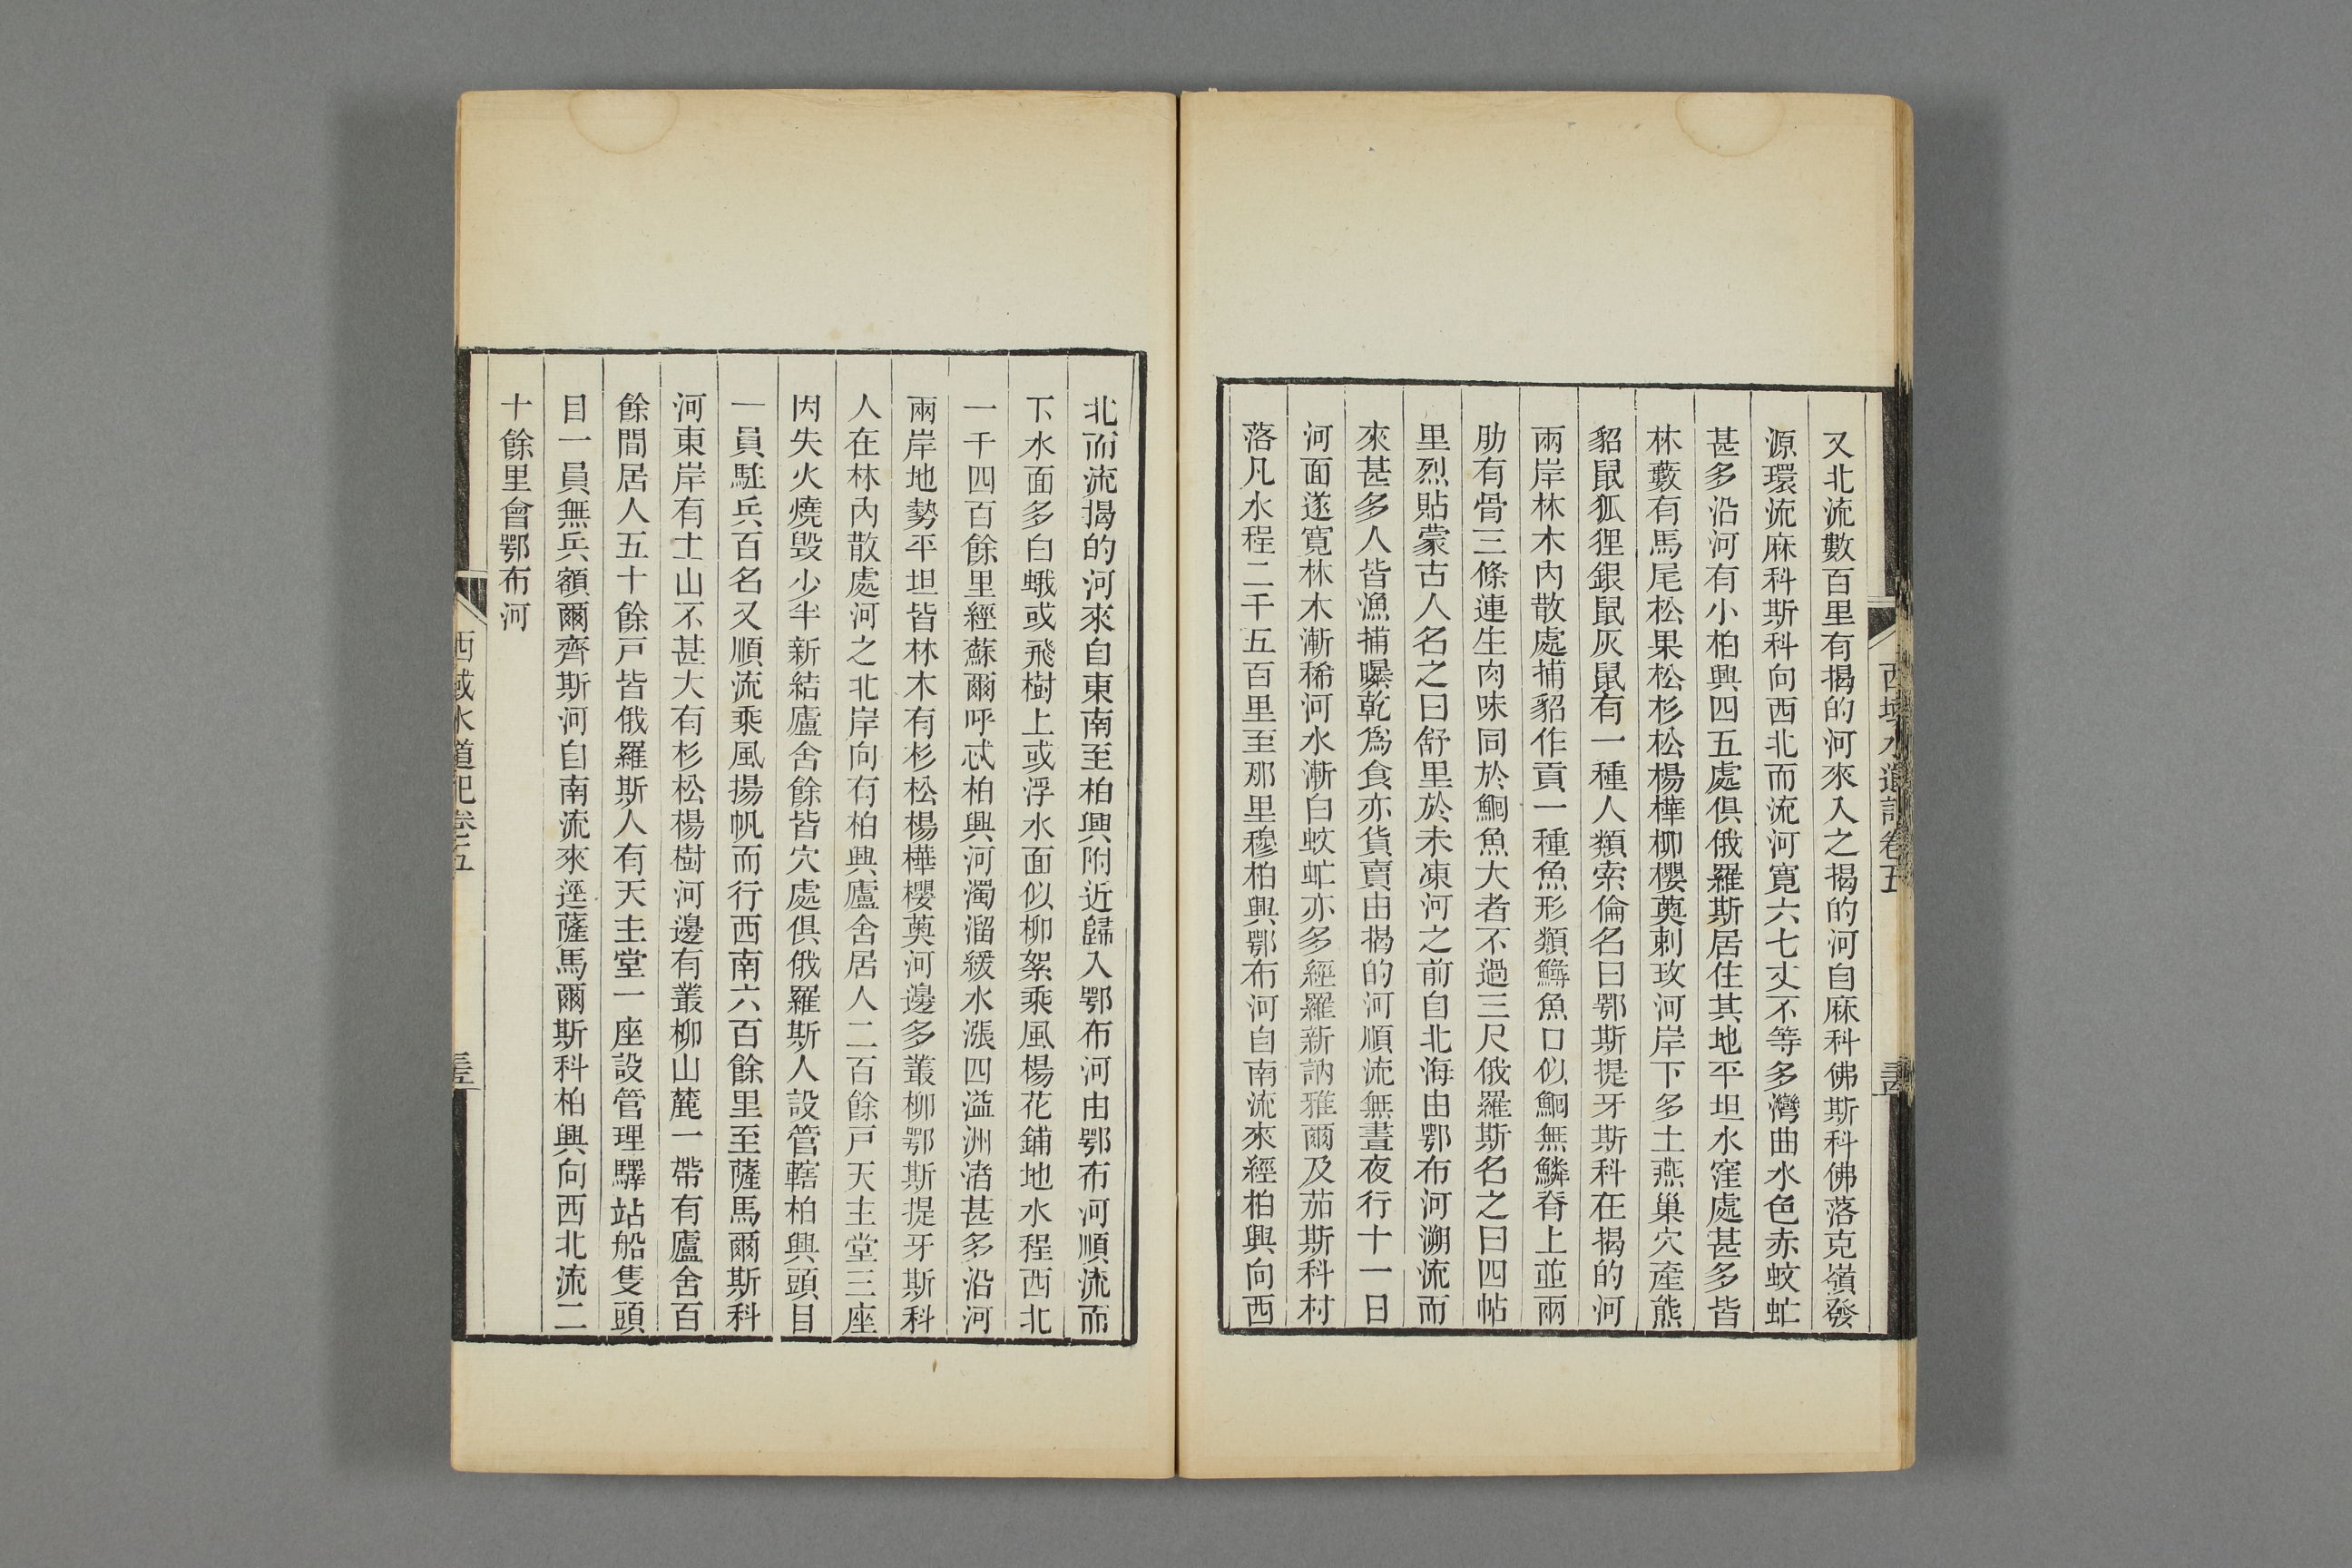 西域水道記卷五
又北流數百里有揭的河來入之揭的河自麻科佛斯科佛落克嶺發
源環流麻科斯科向西北而流河寬六七丈不等多灣曲水色赤蚊虻
甚多沿河有小柏興四五處俱俄羅斯居住其地平坦水窪處甚多皆
林藪有馬尾松果松杉松楊樺柳櫻薁刺玫河岸下多土燕巢穴產熊
貂鼠狐狸銀鼠灰鼠有一種人類索倫名曰鄂斯提牙斯科在揭的河
兩岸林木內散處捕貂作貢一種魚形類鱘魚口似鮰無鱗脊上並兩
肋有骨三條連生肉味同於鮰魚大者不過三尺俄羅斯名之曰四帖
里烈貼蒙古人名之曰舒里於未凍河之前自北海由鄂布河溯流而
來甚多人皆漁捕曝乾爲食亦貨賣由揭的河順流無晝夜行十一日
河面遂寬林木漸稀河水漸白蚊虻亦多經羅新訥雅爾及茄斯科村
落凡水程二千五百里至那里穆柏興鄂布河自南流來經柏興向西
北而流揭的河來自東南至柏興附近歸入鄂布河由鄂布河順流而
下水面多白蛾或飛樹上或浮水面似柳絮乘風楊花鋪地水程西北
一千四百餘里經蘇爾呼忒柏興河濁溜緩水漲四溢洲渚甚多沿河
兩岸地勢平坦皆林木有杉松楊樺櫻薁河邊多叢柳鄂斯提牙斯科
人在林內散處河之北岸向有柏興廬舍居人二百餘戶天主堂三座
因失火燒毀少半新結廬舍餘皆穴處俱俄羅斯人設管轄柏興頭目
一員駐兵百名又順流乘風揚帆而行西南六百餘里至薩馬爾斯科
河東岸有土山不甚大有杉松楊樹河邊有叢柳山麓一帶有廬舍百
餘間居人五十餘戶皆俄羅斯人有天主堂一座設管理驛站船隻頭
目一員無兵額爾齊斯河自南流來逕薩馬爾斯科柏興向西北流二
十餘里會鄂布河
西域水道記卷五